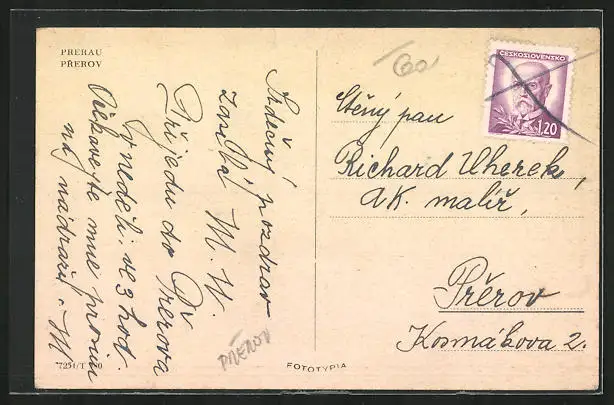 PRERAU
PŘEROV
Srdečný pozdrav
zasílá M. W.
Přijedu do Přerova
v neděli ve 3 hod.
Očekavejte mne prosím
na nádraží. M
7251/T
FOTOTYPIA
PŘEROV
60
ČESKOSLOVENSKO
1.20
Ctěný pan
Richard Uherek,
ak. malíř,
Přerov
Kosmákova 2.